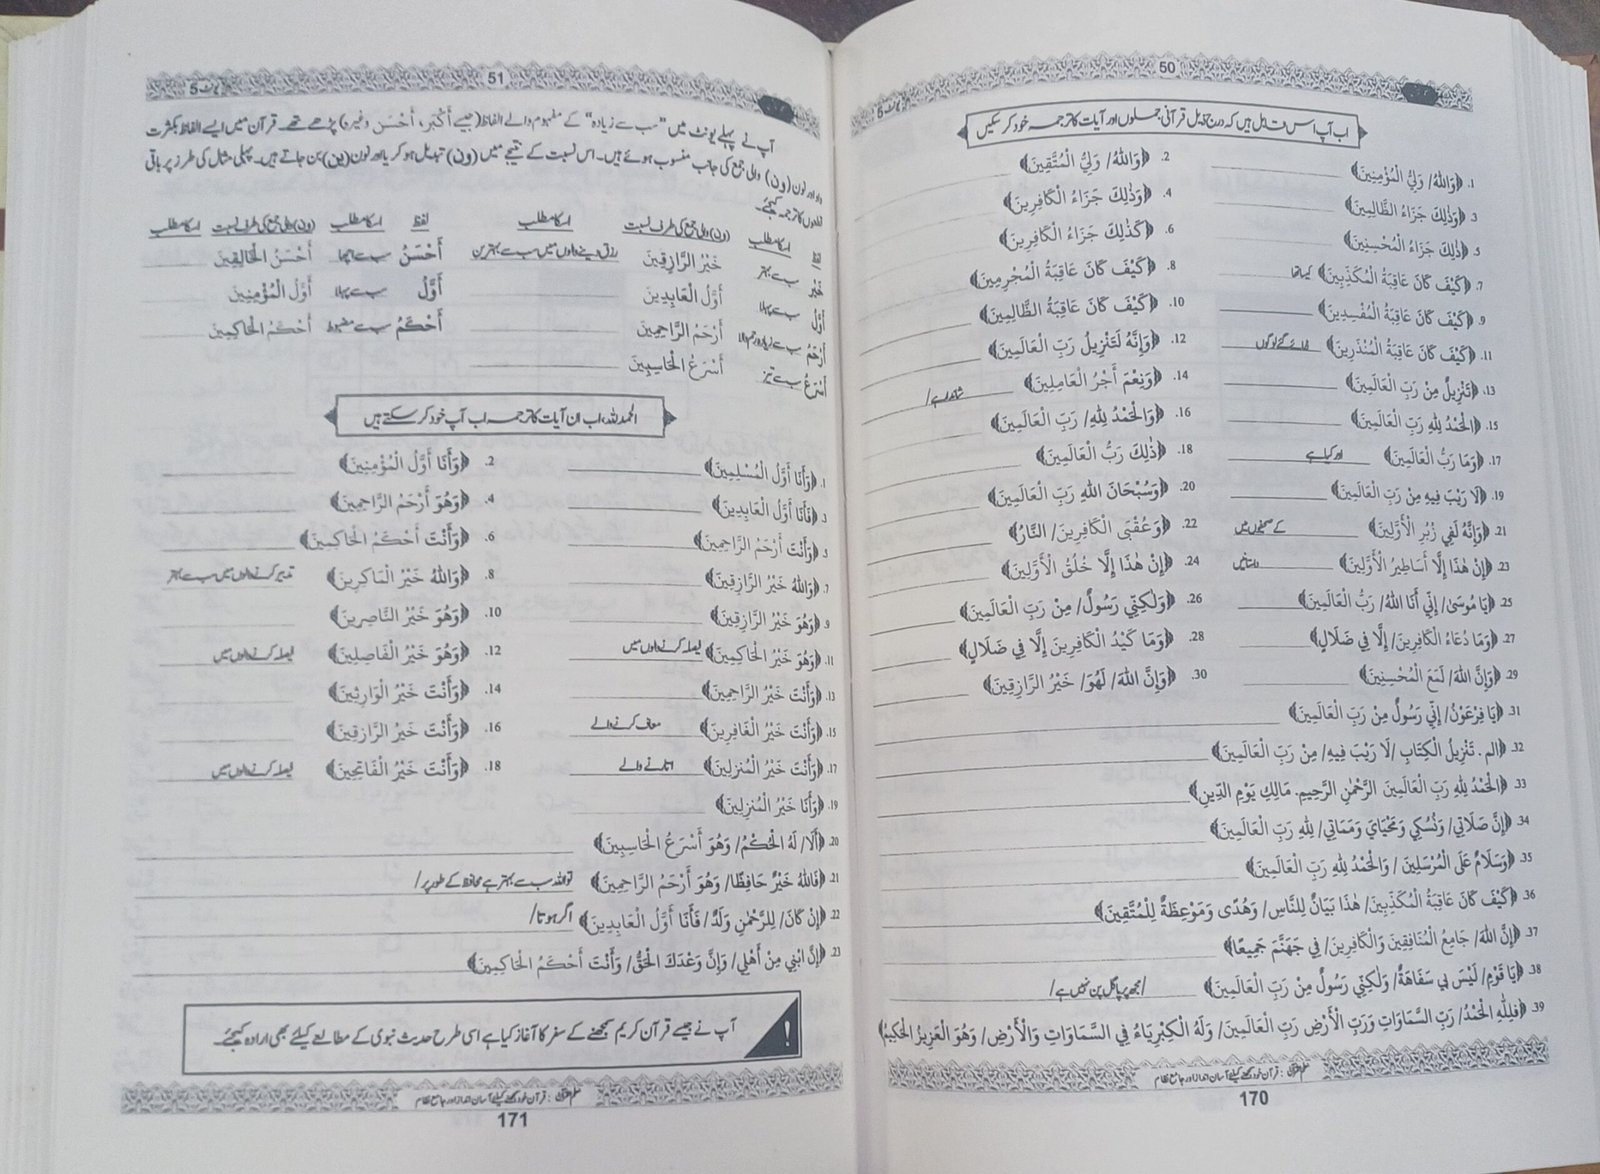 50
یونٹ 5
اب آپ اس قابل ہیں کہ درج ذیل قرآنی جملوں اور آیات کا ترجمہ خود کر سکیں
1. ﴿وَاللهُ/ وَلِيُّ الْمُؤْمِنِينَ﴾ 2. ﴿وَاللهُ/ وَلِيُّ الْمُتَّقِينَ﴾
3. ﴿وَذٰلِكَ جَزَاءُ الظَّالِمِينَ﴾ 4. ﴿وَذٰلِكَ جَزَاءُ الْكَافِرِينَ﴾
5. ﴿ذٰلِكَ جَزَاءُ الْمُحْسِنِينَ﴾ 6. ﴿كَذٰلِكَ جَزَاءُ الْكَافِرِينَ﴾
7. ﴿كَيْفَ كَانَ عَاقِبَةُ الْمُكَذِّبِينَ﴾ کیسا تھا 8. ﴿كَيْفَ كَانَ عَاقِبَةُ الْمُجْرِمِينَ﴾
9. ﴿كَيْفَ كَانَ عَاقِبَةُ الْمُفْسِدِينَ﴾ 10. ﴿كَيْفَ كَانَ عَاقِبَةُ الظَّالِمِينَ﴾
11. ﴿كَيْفَ كَانَ عَاقِبَةُ الْمُنْذَرِينَ﴾ ڈرائے گئے لوگوں 12. ﴿وَإِنَّهُ لَتَنْزِيلُ رَبِّ الْعَالَمِينَ﴾
13. ﴿تَنْزِيلٌ مِنْ رَبِّ الْعَالَمِينَ﴾ 14. ﴿وَنِعْمَ أَجْرُ الْعَامِلِينَ﴾ شاندار ہے/
15. ﴿الْحَمْدُ لِلهِ رَبِّ الْعَالَمِينَ﴾ 16. ﴿وَالْحَمْدُ لِلهِ/ رَبِّ الْعَالَمِينَ﴾
17. ﴿وَمَا رَبُّ الْعَالَمِينَ﴾ اور کیا ہے 18. ﴿ذٰلِكَ رَبُّ الْعَالَمِينَ﴾
19. ﴿لَا رَيْبَ فِيهِ مِنْ رَبِّ الْعَالَمِينَ﴾ 20. ﴿وَسُبْحَانَ اللهِ رَبِّ الْعَالَمِينَ﴾
21. ﴿وَإِنَّهُ لَفِي زُبُرِ الْأَوَّلِينَ﴾ کے صحیفوں میں 22. ﴿وَعُقْبَى الْكَافِرِينَ/ النَّارُ﴾
23. ﴿إِنْ هٰذَا إِلَّا أَسَاطِيرُ الْأَوَّلِينَ﴾ داستانیں 24. ﴿إِنْ هٰذَا إِلَّا خُلُقُ الْأَوَّلِينَ﴾
25. ﴿يَا مُوسَىٰ/ إِنِّي أَنَا اللهُ/ رَبُّ الْعَالَمِينَ﴾ 26. ﴿وَلٰكِنِّي رَسُولٌ/ مِنْ رَبِّ الْعَالَمِينَ﴾
27. ﴿وَمَا دُعَاءُ الْكَافِرِينَ/ إِلَّا فِي ضَلَالٍ﴾ 28. ﴿وَمَا كَيْدُ الْكَافِرِينَ إِلَّا فِي ضَلَالٍ﴾
29. ﴿وَإِنَّ اللهَ/ لَمَعَ الْمُحْسِنِينَ﴾ 30. ﴿وَإِنَّ اللهَ/ لَهُوَ/ خَيْرُ الرَّازِقِينَ﴾
31. ﴿يَا فِرْعَوْنُ/ إِنِّي رَسُولٌ مِنْ رَبِّ الْعَالَمِينَ﴾
32. ﴿الم. تَنْزِيلُ الْكِتَابِ /لَا رَيْبَ فِيهِ/ مِنْ رَبِّ الْعَالَمِينَ﴾
33. ﴿الْحَمْدُ لِلهِ رَبِّ الْعَالَمِينَ الرَّحْمٰنِ الرَّحِيمِ. مَالِكِ يَوْمِ الدِّينِ﴾
34. ﴿إِنَّ صَلَاتِي/ وَنُسُكِي وَمَحْيَايَ وَمَمَاتِي/ لِلهِ رَبِّ الْعَالَمِينَ﴾
35. ﴿وَسَلَامٌ عَلَى الْمُرْسَلِينَ / وَالْحَمْدُ لِلهِ رَبِّ الْعَالَمِينَ﴾
36. ﴿كَيْفَ كَانَ عَاقِبَةُ الْمُكَذِّبِينَ/ هٰذَا بَيَانٌ لِلنَّاسِ/ وَهُدًى وَمَوْعِظَةٌ لِلْمُتَّقِينَ﴾
37. ﴿إِنَّ اللهَ/ جَامِعُ الْمُنَافِقِينَ وَالْكَافِرِينَ/ فِي جَهَنَّمَ جَمِيعًا﴾
38. ﴿يَا قَوْمِ/ لَيْسَ بِي سَفَاهَةٌ/ وَلٰكِنِّي رَسُولٌ مِنْ رَبِّ الْعَالَمِينَ﴾ /مجھ پر پاگل پن نہیں ہے/
39. ﴿فَلِلّٰهِ الْحَمْدُ/ رَبِّ السَّمَاوَاتِ وَرَبِّ الْأَرْضِ رَبِّ الْعَالَمِينَ/ وَلَهُ الْكِبْرِيَاءُ فِي السَّمَاوَاتِ وَالْأَرْضِ/ وَهُوَ الْعَزِيزُ الْحَكِيمُ﴾
: قرآن خود سمجھنے کیلئے آسان انداز اور جامع نظام
170
51
یونٹ 5
آپ نے پہلے یونٹ میں "سب سے زیادہ" کے مفہوم والے الفاظ (جیسے أَكْبَر، أَحْسَن وغیرہ) پڑھے تھے۔ قرآن میں ایسے الفاظ بکثرت
واؤ اور نون (ون) والی جمع کی جانب منسوب ہوئے ہیں۔ اس نسبت کے نتیجے میں (ون) تبدیل ہو کر یا اور نون (ین) بن جاتے ہیں۔ پہلی مثال کی طرز پر باقی
لفظوں کا ترجمہ کیجئے۔
لفظ اسکا مطلب (ون) والی جمع کی طرف نسبت اسکا مطلب لفظ اسکا مطلب (ون) والی جمع کی طرف نسبت اسکا مطلب
خَيْرُ سب سے بہتر خَيْرُ الرَّازِقِينَ رزق دینے والوں میں سب سے بہترین أَحْسَنُ سب سے اچھا أَحْسَنُ الْخَالِقِينَ
أَوَّلُ سب سے پہلا أَوَّلُ الْعَابِدِينَ أَوَّلُ سب سے پہلا أَوَّلُ الْمُؤْمِنِينَ
أَرْحَمُ سب سے زیادہ رحم والا أَرْحَمُ الرَّاحِمِينَ أَحْكَمُ سب سے مضبوط أَحْكَمُ الْحَاكِمِينَ
أَسْرَعُ سب سے تیز أَسْرَعُ الْحَاسِبِينَ
الحمدللہ، اب ان آیات کا ترجمہ اب آپ خود کر سکتے ہیں
1. ﴿وَأَنَا أَوَّلُ الْمُسْلِمِينَ﴾ 2. ﴿وَأَنَا أَوَّلُ الْمُؤْمِنِينَ﴾
3. ﴿فَأَنَا أَوَّلُ الْعَابِدِينَ﴾ 4. ﴿وَهُوَ أَرْحَمُ الرَّاحِمِينَ﴾
5. ﴿وَأَنْتَ أَرْحَمُ الرَّاحِمِينَ﴾ 6. ﴿وَأَنْتَ أَحْكَمُ الْحَاكِمِينَ﴾
7. ﴿وَاللهُ خَيْرُ الرَّازِقِينَ﴾ 8. ﴿وَاللهُ خَيْرُ الْمَاكِرِينَ﴾ تدبیر کرنے والوں میں سب سے بہتر
9. ﴿وَهُوَ خَيْرُ الرَّازِقِينَ﴾ 10. ﴿وَهُوَ خَيْرُ النَّاصِرِينَ﴾
11. ﴿وَهُوَ خَيْرُ الْحَاكِمِينَ﴾ فیصلہ کرنے والوں میں 12. ﴿وَهُوَ خَيْرُ الْفَاصِلِينَ﴾ فیصلہ کرنے والوں میں
13. ﴿وَأَنْتَ خَيْرُ الرَّاحِمِينَ﴾ 14. ﴿وَأَنْتَ خَيْرُ الْوَارِثِينَ﴾
15. ﴿وَأَنْتَ خَيْرُ الْغَافِرِينَ﴾ معاف کرنے والے 16. ﴿وَأَنْتَ خَيْرُ الرَّازِقِينَ﴾
17. ﴿وَأَنْتَ خَيْرُ الْمُنزِلِينَ﴾ اتارنے والے 18. ﴿وَأَنْتَ خَيْرُ الْفَاتِحِينَ﴾ فیصلہ کرنے والوں میں
19. ﴿وَأَنَا خَيْرُ الْمُنْزِلِينَ﴾
20. ﴿أَلَا/ لَهُ الْحُكْمُ/ وَهُوَ أَسْرَعُ الْحَاسِبِينَ﴾
21. ﴿فَاللهُ خَيْرٌ حَافِظًا/ وَهُوَ أَرْحَمُ الرَّاحِمِينَ﴾ تو اللہ سب سے بہتر ہے محافظ کے طور پر/
22. ﴿إِنْ كَانَ/ لِلرَّحْمٰنِ وَلَدٌ/ فَأَنَا أَوَّلُ الْعَابِدِينَ﴾ اگر ہوتا/
23. ﴿إِنَّ ابْنِي مِنْ أَهْلِي/ وَإِنَّ وَعْدَكَ الْحَقُّ/ وَأَنْتَ أَحْكَمُ الْحَاكِمِينَ﴾
! آپ نے جیسے قرآن کریم سمجھنے کے سفر کا آغاز کیا ہے اسی طرح حدیث نبوی کے مطالعے کیلئے بھی ارادہ کیجئے۔
: قرآن خود سمجھنے کیلئے آسان انداز اور جامع نظام
171